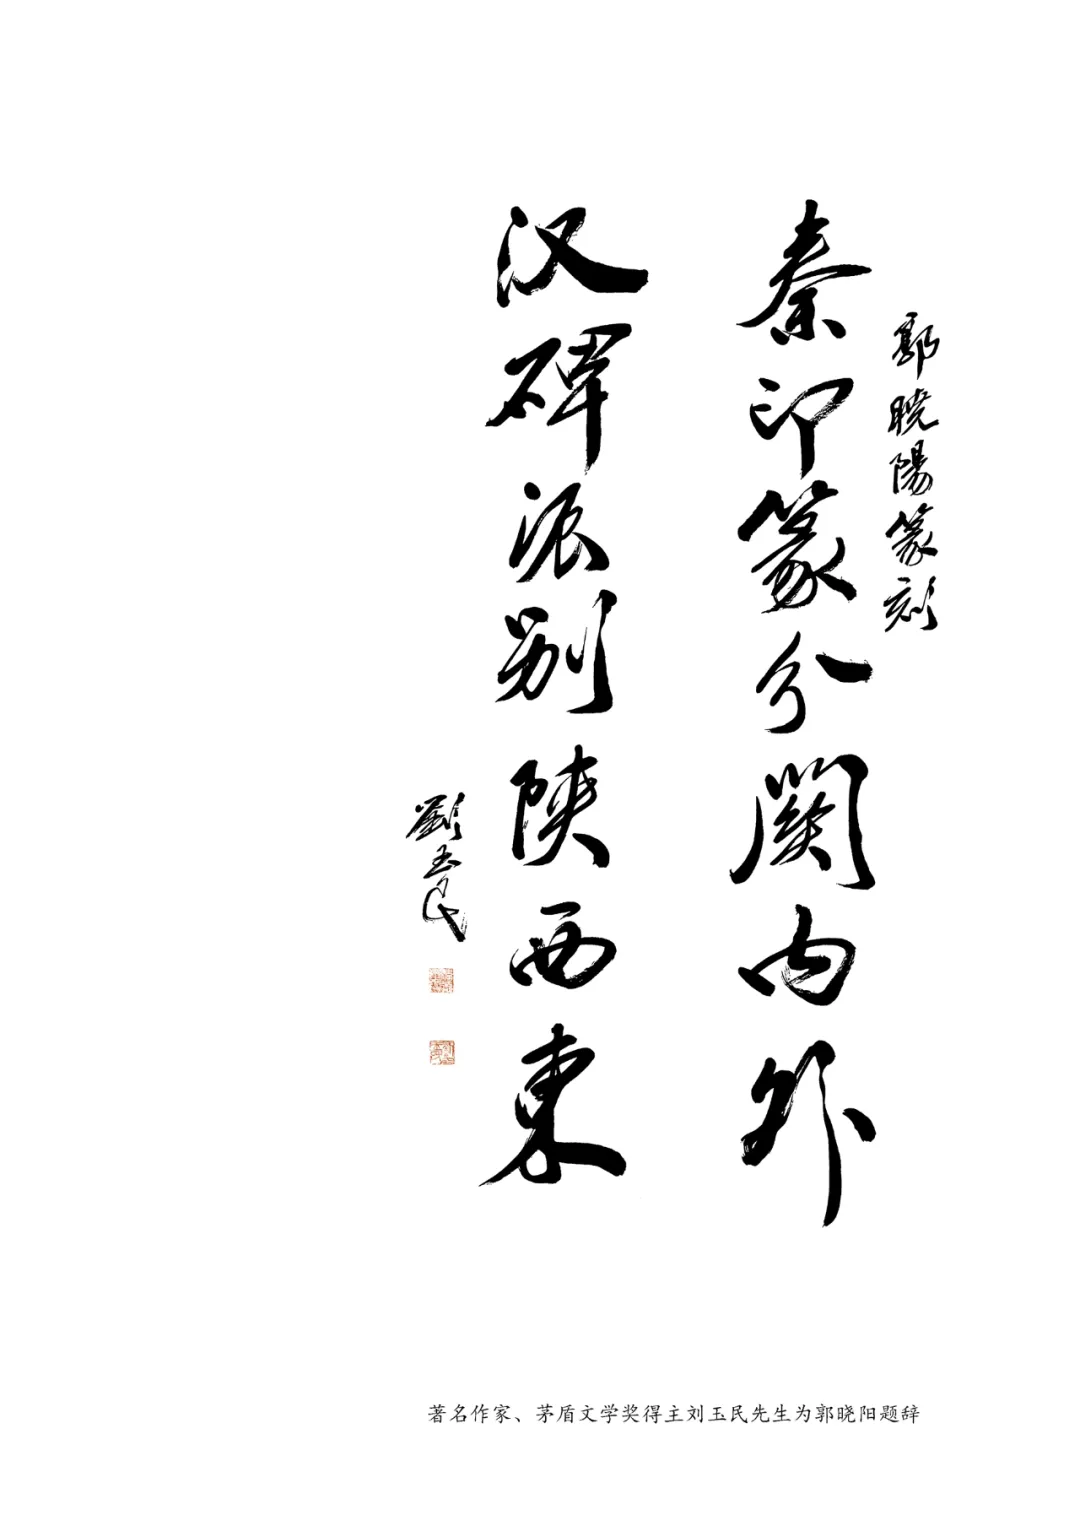 郭晓陽篆刻
秦印篆分関内外
汉碑派别陕西東
劉玉民
著名作家、茅盾文学奖得主刘玉民先生为郭晓阳题辞